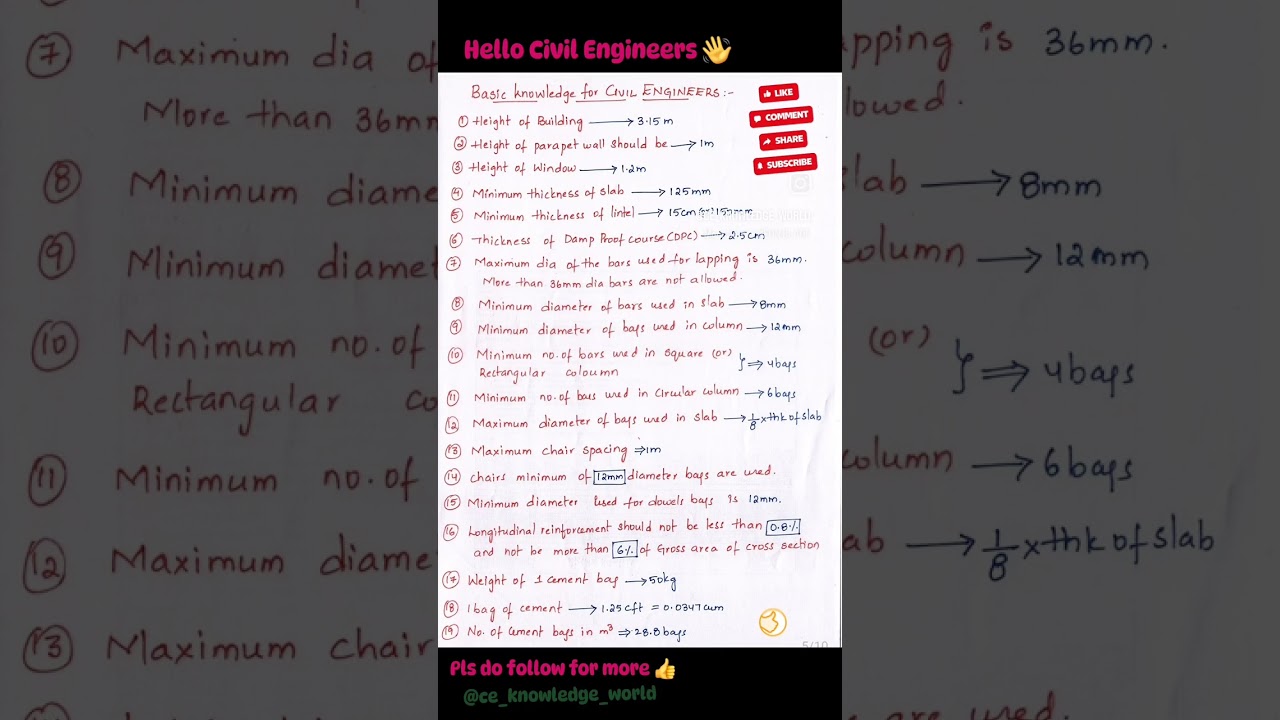 Hello Civil Engineers 👋
Basic knowledge for CIVIL ENGINEERS:-
LIKE
COMMENT
SHARE
SUBSCRIBE
① Height of Building → 3.15 m
② Height of parapet wall should be → 1m
③ Height of window → 1.2m
④ Minimum thickness of slab → 125mm
⑤ Minimum thickness of lintel → 15cm (or)
⑥ Thickness of Damp Proof Course (DPC) → 2.5cm
⑦ Maximum dia of the bars used for lapping is 36mm.
More than 36mm dia bars are not allowed.
⑧ Minimum diameter of bars used in slab → 8mm
⑨ Minimum diameter of bars used in column → 12mm
⑩ Minimum no. of bars used in square (or)
Rectangular coloumn } ⇒ 4 bars
⑪ Minimum no. of bars used in Circular column → 6 bars
⑫ Maximum diameter of bars used in slab → 1/8 x thk of slab
⑬ Maximum chair spacing ⇒ 1m
⑭ chairs minimum of 12mm diameter bars are used.
⑮ Minimum diameter used for dowels bars is 12mm.
⑯ Longitudinal reinforcement should not be less than 0.8%
and not be more than 6% of Gross area of cross section
⑰ Weight of 1 cement bag → 50kg
⑱ 1 bag of cement → 1.25 cft = 0.0347 cum
⑲ No. of Cement bags in m³ ⇒ 28.8 bags
3
5/10
Pls do follow for more 👍
@ce_knowledge_world
⑦ Maximum dia of
lapping is 36mm.
More than 36mm
llowed.
⑧ Minimum diame
slab → 8mm
⑨ Minimum diamet
column → 12mm
⑩ Minimum no. of
(or)
Rectangular co
} ⇒ 4 bars
⑪ Minimum no. of
column → 6 bars
⑫ Maximum diame
lab → 1/8 x thk of slab
⑬ Maximum chair
re used.